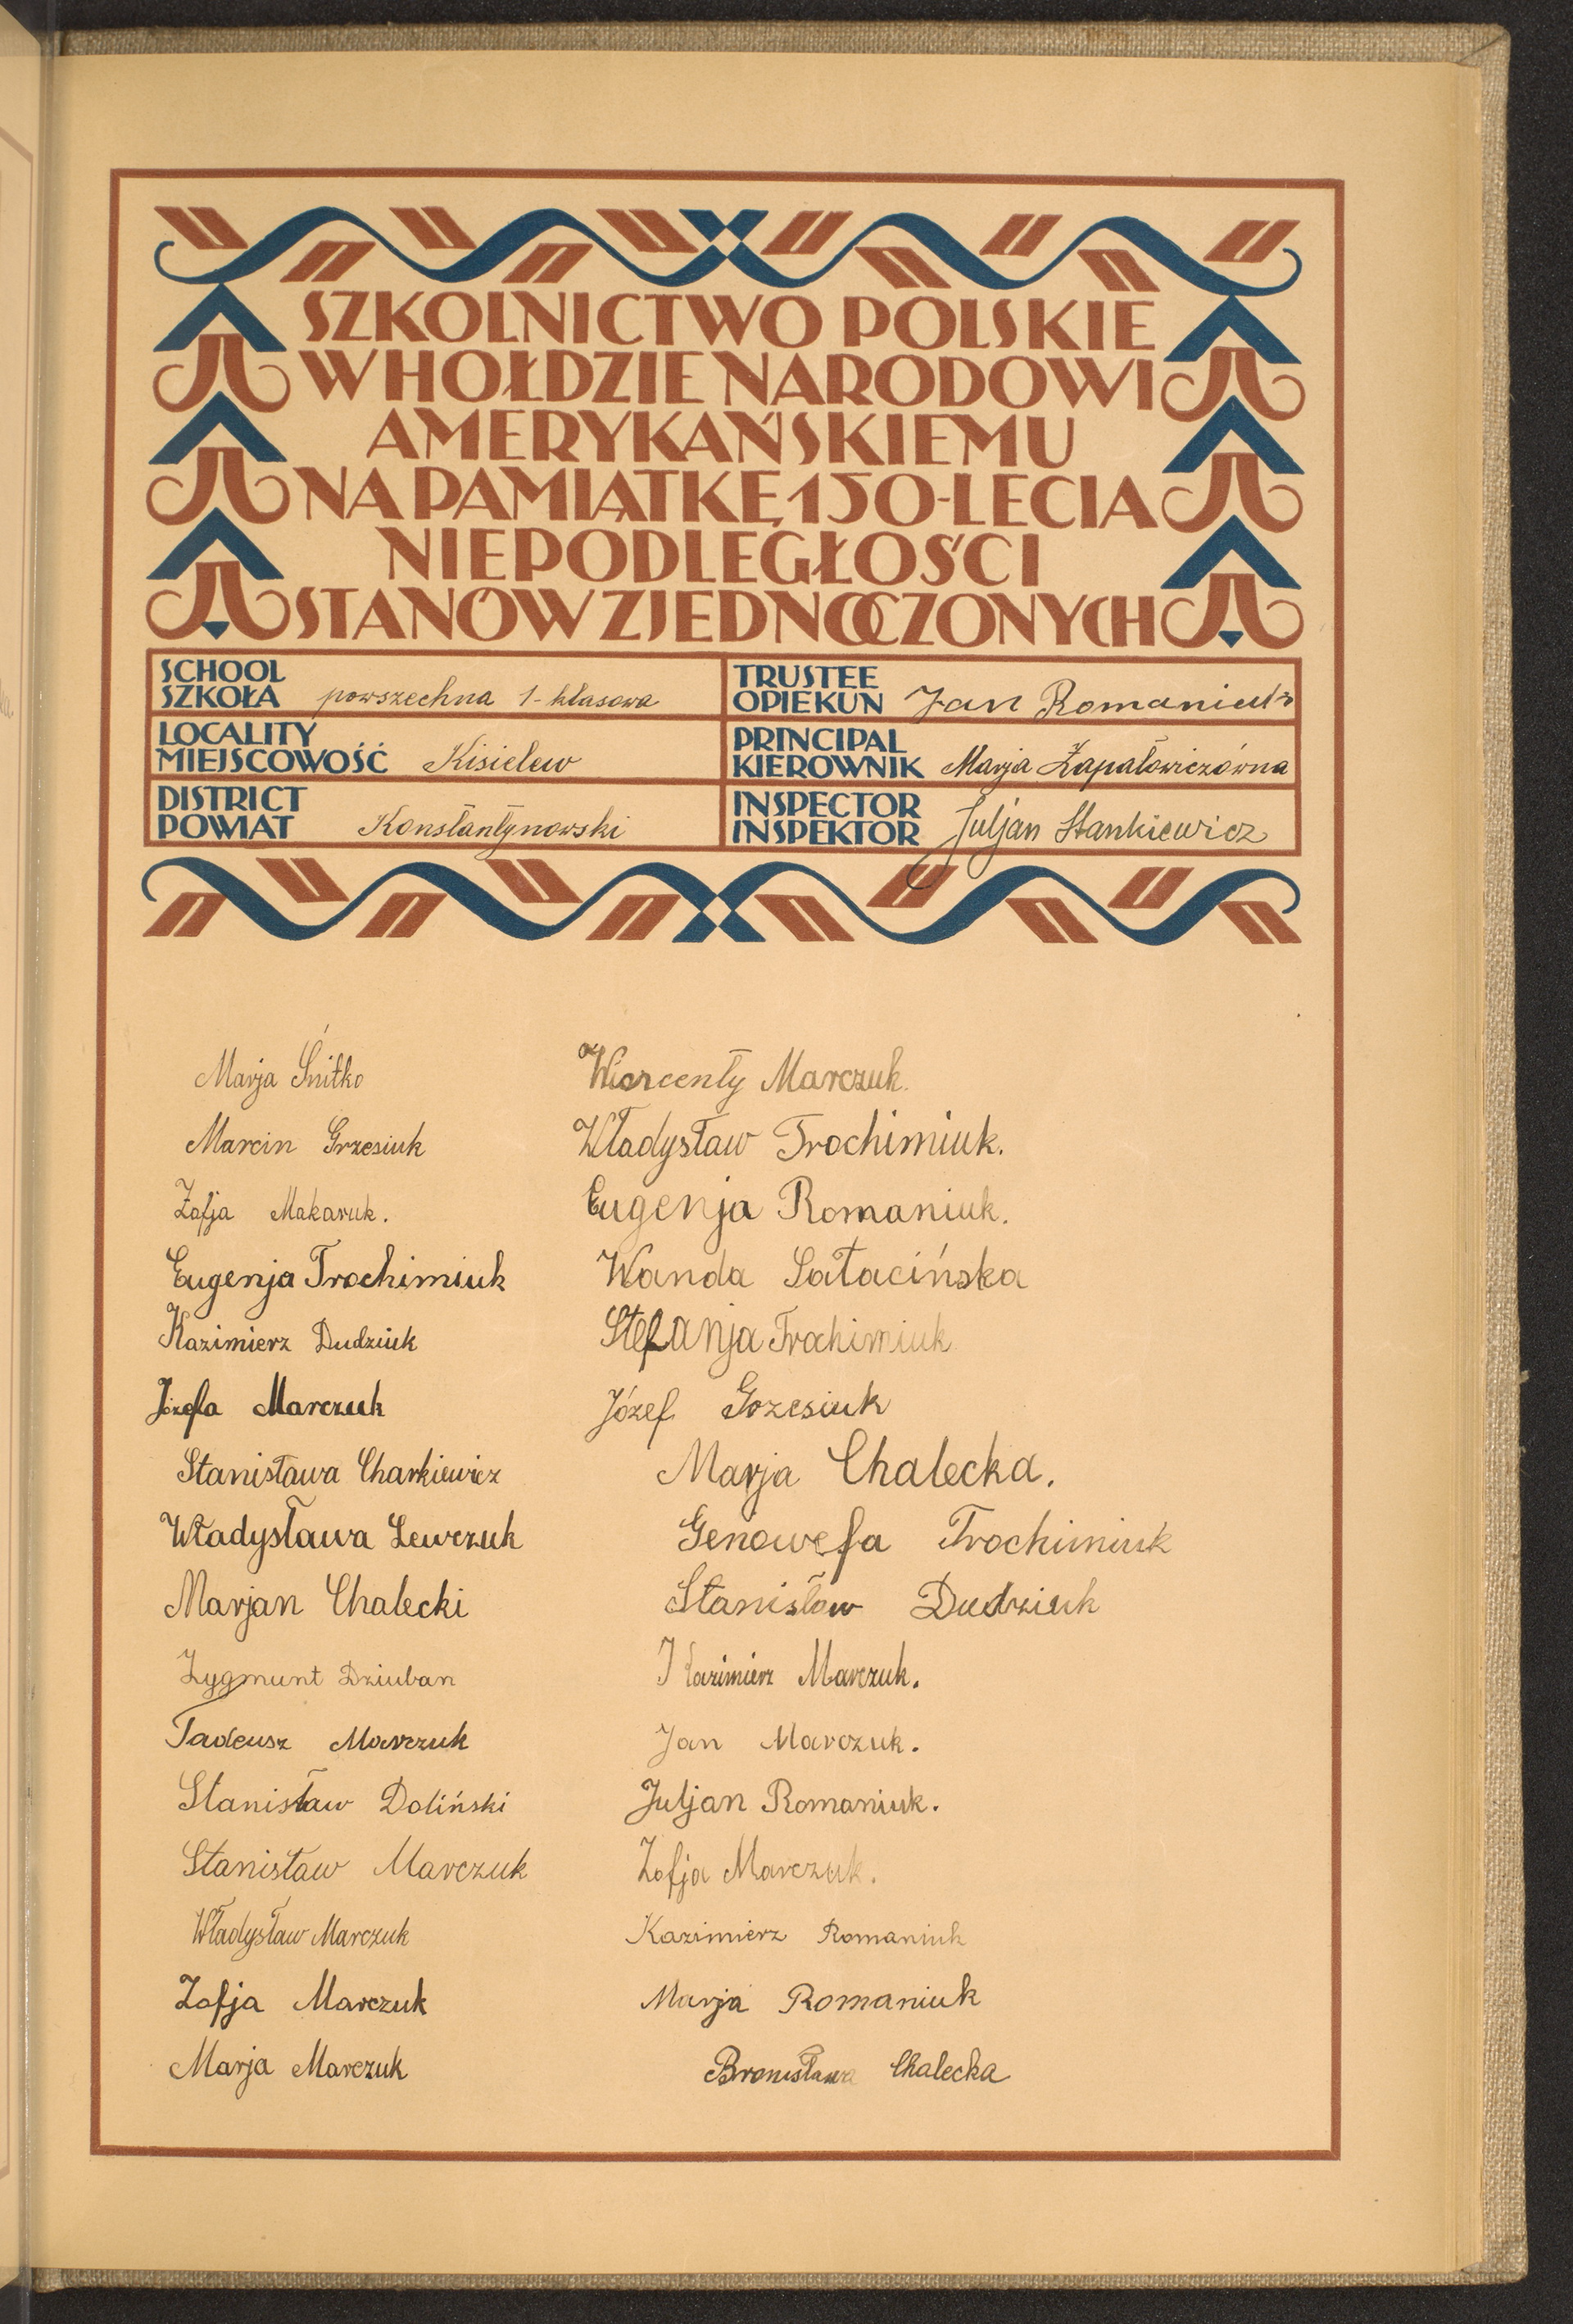 SZKOLNICTWO POLSKIE
W HOŁDZIE NARODOWI
AMERYKAŃSKIEMU
NA PAMIĄTKĘ 150-LECIA
NIEPODLEGŁOŚCI
STANÓW ZJEDNOCZONYCH
SCHOOL
SZKOŁA powszechna 1-klasowa
TRUSTEE
OPIEKUN Jan Romaniuk
LOCALITY
MIEJSCOWOŚĆ Kisielew
PRINCIPAL
KIEROWNIK Marja Zapałowiczówna
DISTRICT
POWIAT Konstantynowski
INSPECTOR
INSPEKTOR Juljan Stankiewicz
Marja Śnitko
Marcin Grzesiuk
Zofja Makaruk.
Eugenja Trochimiuk
Kazimierz Dudziuk
Józefa Marczuk
Stanisława Charkiewicz
Władysława Lewczuk
Marjan Chalecki
Zygmunt Dziuban
Tadeusz Marczuk
Stanisław Doliński
Stanisław Marczuk
Władysław Marczuk
Zofja Marczuk
Marja Marczuk
Marczuk.
Władysław Trochimiuk.
Eugenja Romaniuk.
Wanda Sałacińska
Stefanja Trochimiuk
Józef Grzesiuk
Marja Chalecka.
Genowefa Trochimiuk
Stanisław Dudziuk
Kazimierz Marczuk.
Jan Marczuk.
Juljan Romaniuk.
Zofja Marczuk.
Kazimierz Romaniuk
Marja Romaniuk
Bronisława Chalecka